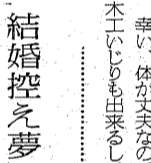 幸い、体が丈夫なの
木工いじりも出来るし
結婚控え夢